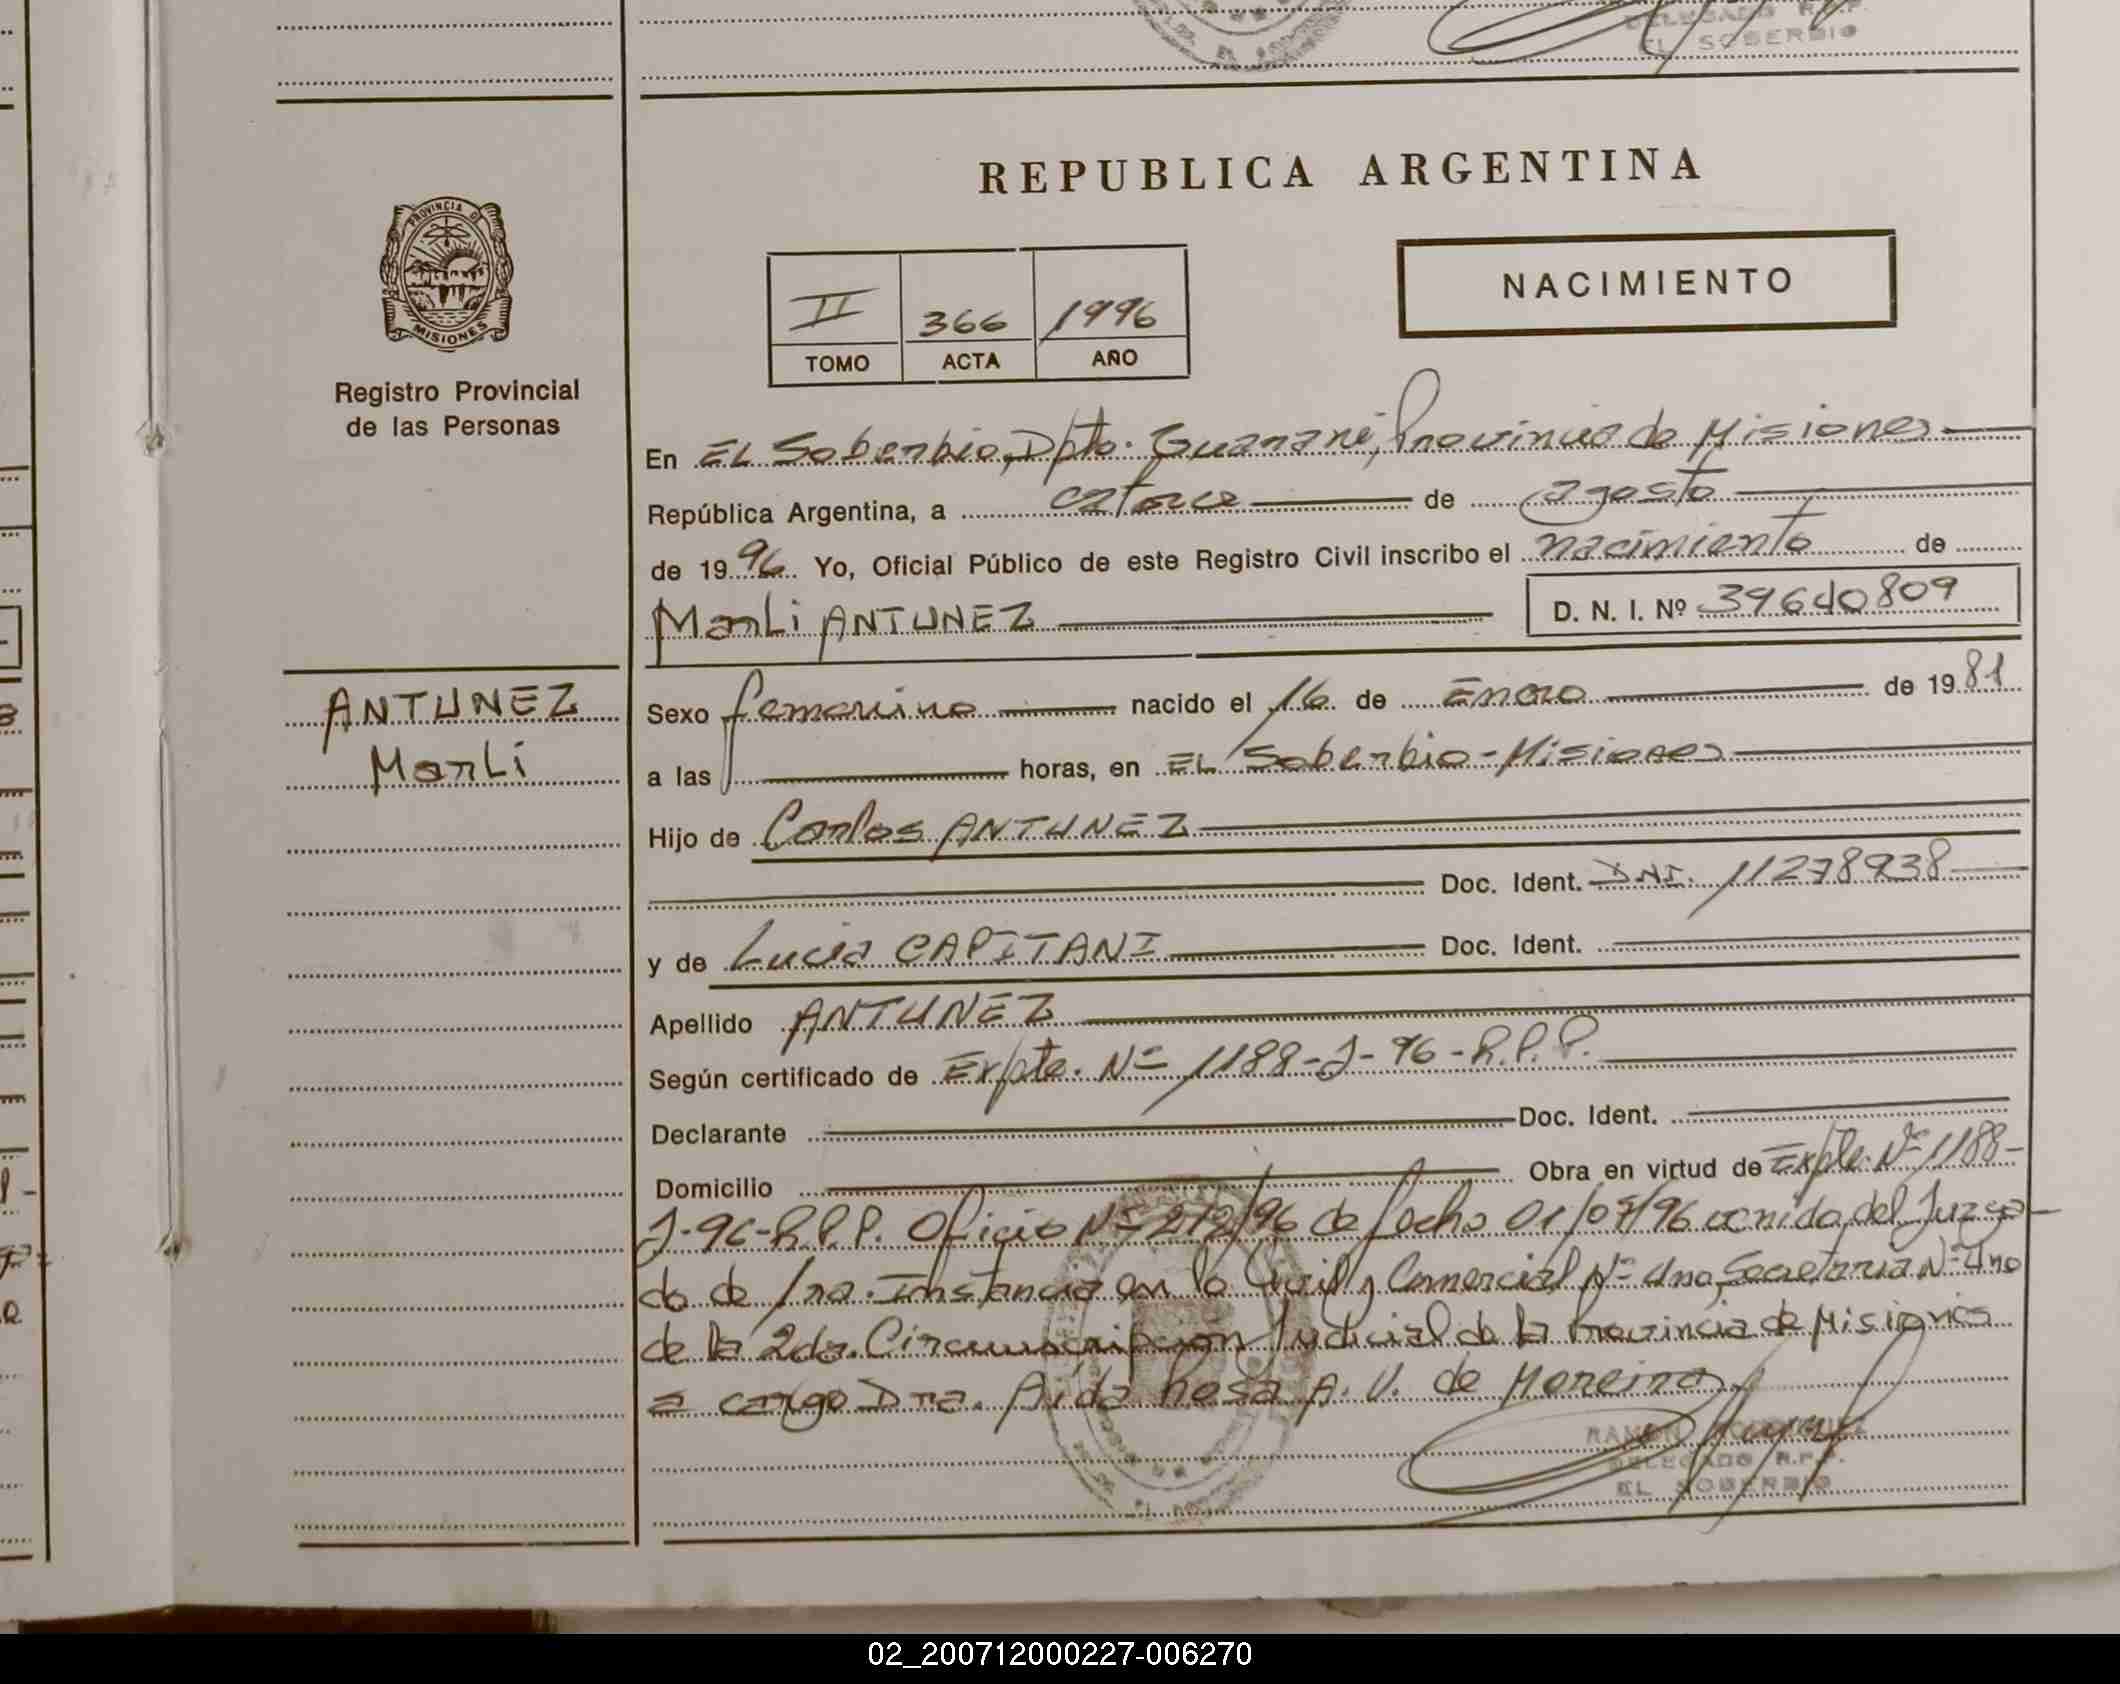 DELEGADO R.P.P.
EL SOBERBIO
REPUBLICA ARGENTINA
PROVINCIA D
MISIONES
Registro Provincial
de las Personas
II 366 1996
TOMO ACTA AÑO
NACIMIENTO
En EL Soberbio, Dpto. Guaraní, Provincia de Misiones
República Argentina, a catorce de agosto
de 1996 Yo, Oficial Público de este Registro Civil inscribo el nacimiento de
MarLi ANTUNEZ D. N. I. Nº 39640809
ANTUNEZ
MarLi
Sexo femenino nacido el 16 de Enero de 1981
a las horas, en EL Soberbio - Misiones
Hijo de Carlos ANTUNEZ
Doc. Ident. DNI. 11278938
y de Lucia CAPITANI Doc. Ident.
Apellido ANTUNEZ
Según certificado de Expte. Nº 1188-J-96-R.P.P.
Declarante Doc. Ident.
Domicilio Obra en virtud de Expte. Nº 1188-
J-96-R.P.P. Oficio Nº 272/96 de fecha 01/07/96 venido del Juzga-
do de 1ra. Instancia en lo Civil y Comercial Nº Uno, Secretaria Nº Uno
de la 2da. Circunscripcion Judicial de la Provincia de Misiones
a cargo Dra. Aida Rosa A. V. de Moreira
RAMON
DELEGADO R.P.P.
EL SOBERBIO
02_200712000227-006270